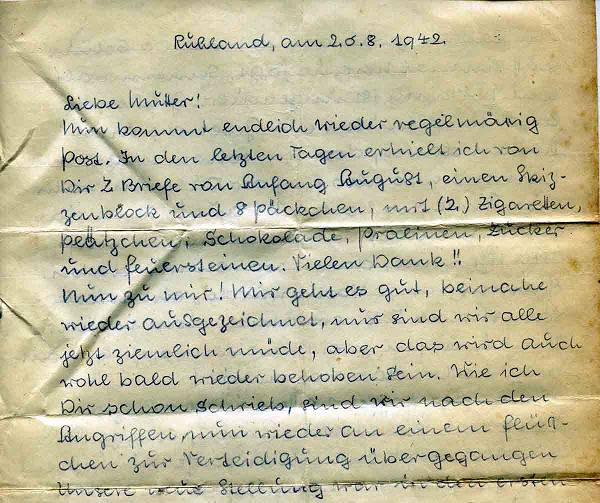 Rußland, am 26.8. 1942.
Liebe Mutter!
Nun kommt endlich wieder regelmäßig
Post. In den letzten Tagen erhielt ich von
Dir 2 Briefe von Anfang August, einen Skiz-
zenblock und 8 Päckchen, mit (2) Zigaretten,
Plätzchen, Schokolade, Pralinen, Zucker
und Feuersteinen. Vielen Dank!!
Nun zu mir! Mir geht es gut, beinahe
wieder ausgezeichnet, nur sind wir alle
jetzt ziemlich müde, aber das wird auch
wohl bald wieder behoben sein. Wie ich
Dir schon schrieb, sind wir nach den
Angriffen nun wieder an einem Flüß-
chen zur Verteidigung übergegangen
Unsere neue Stellung war in den ersten